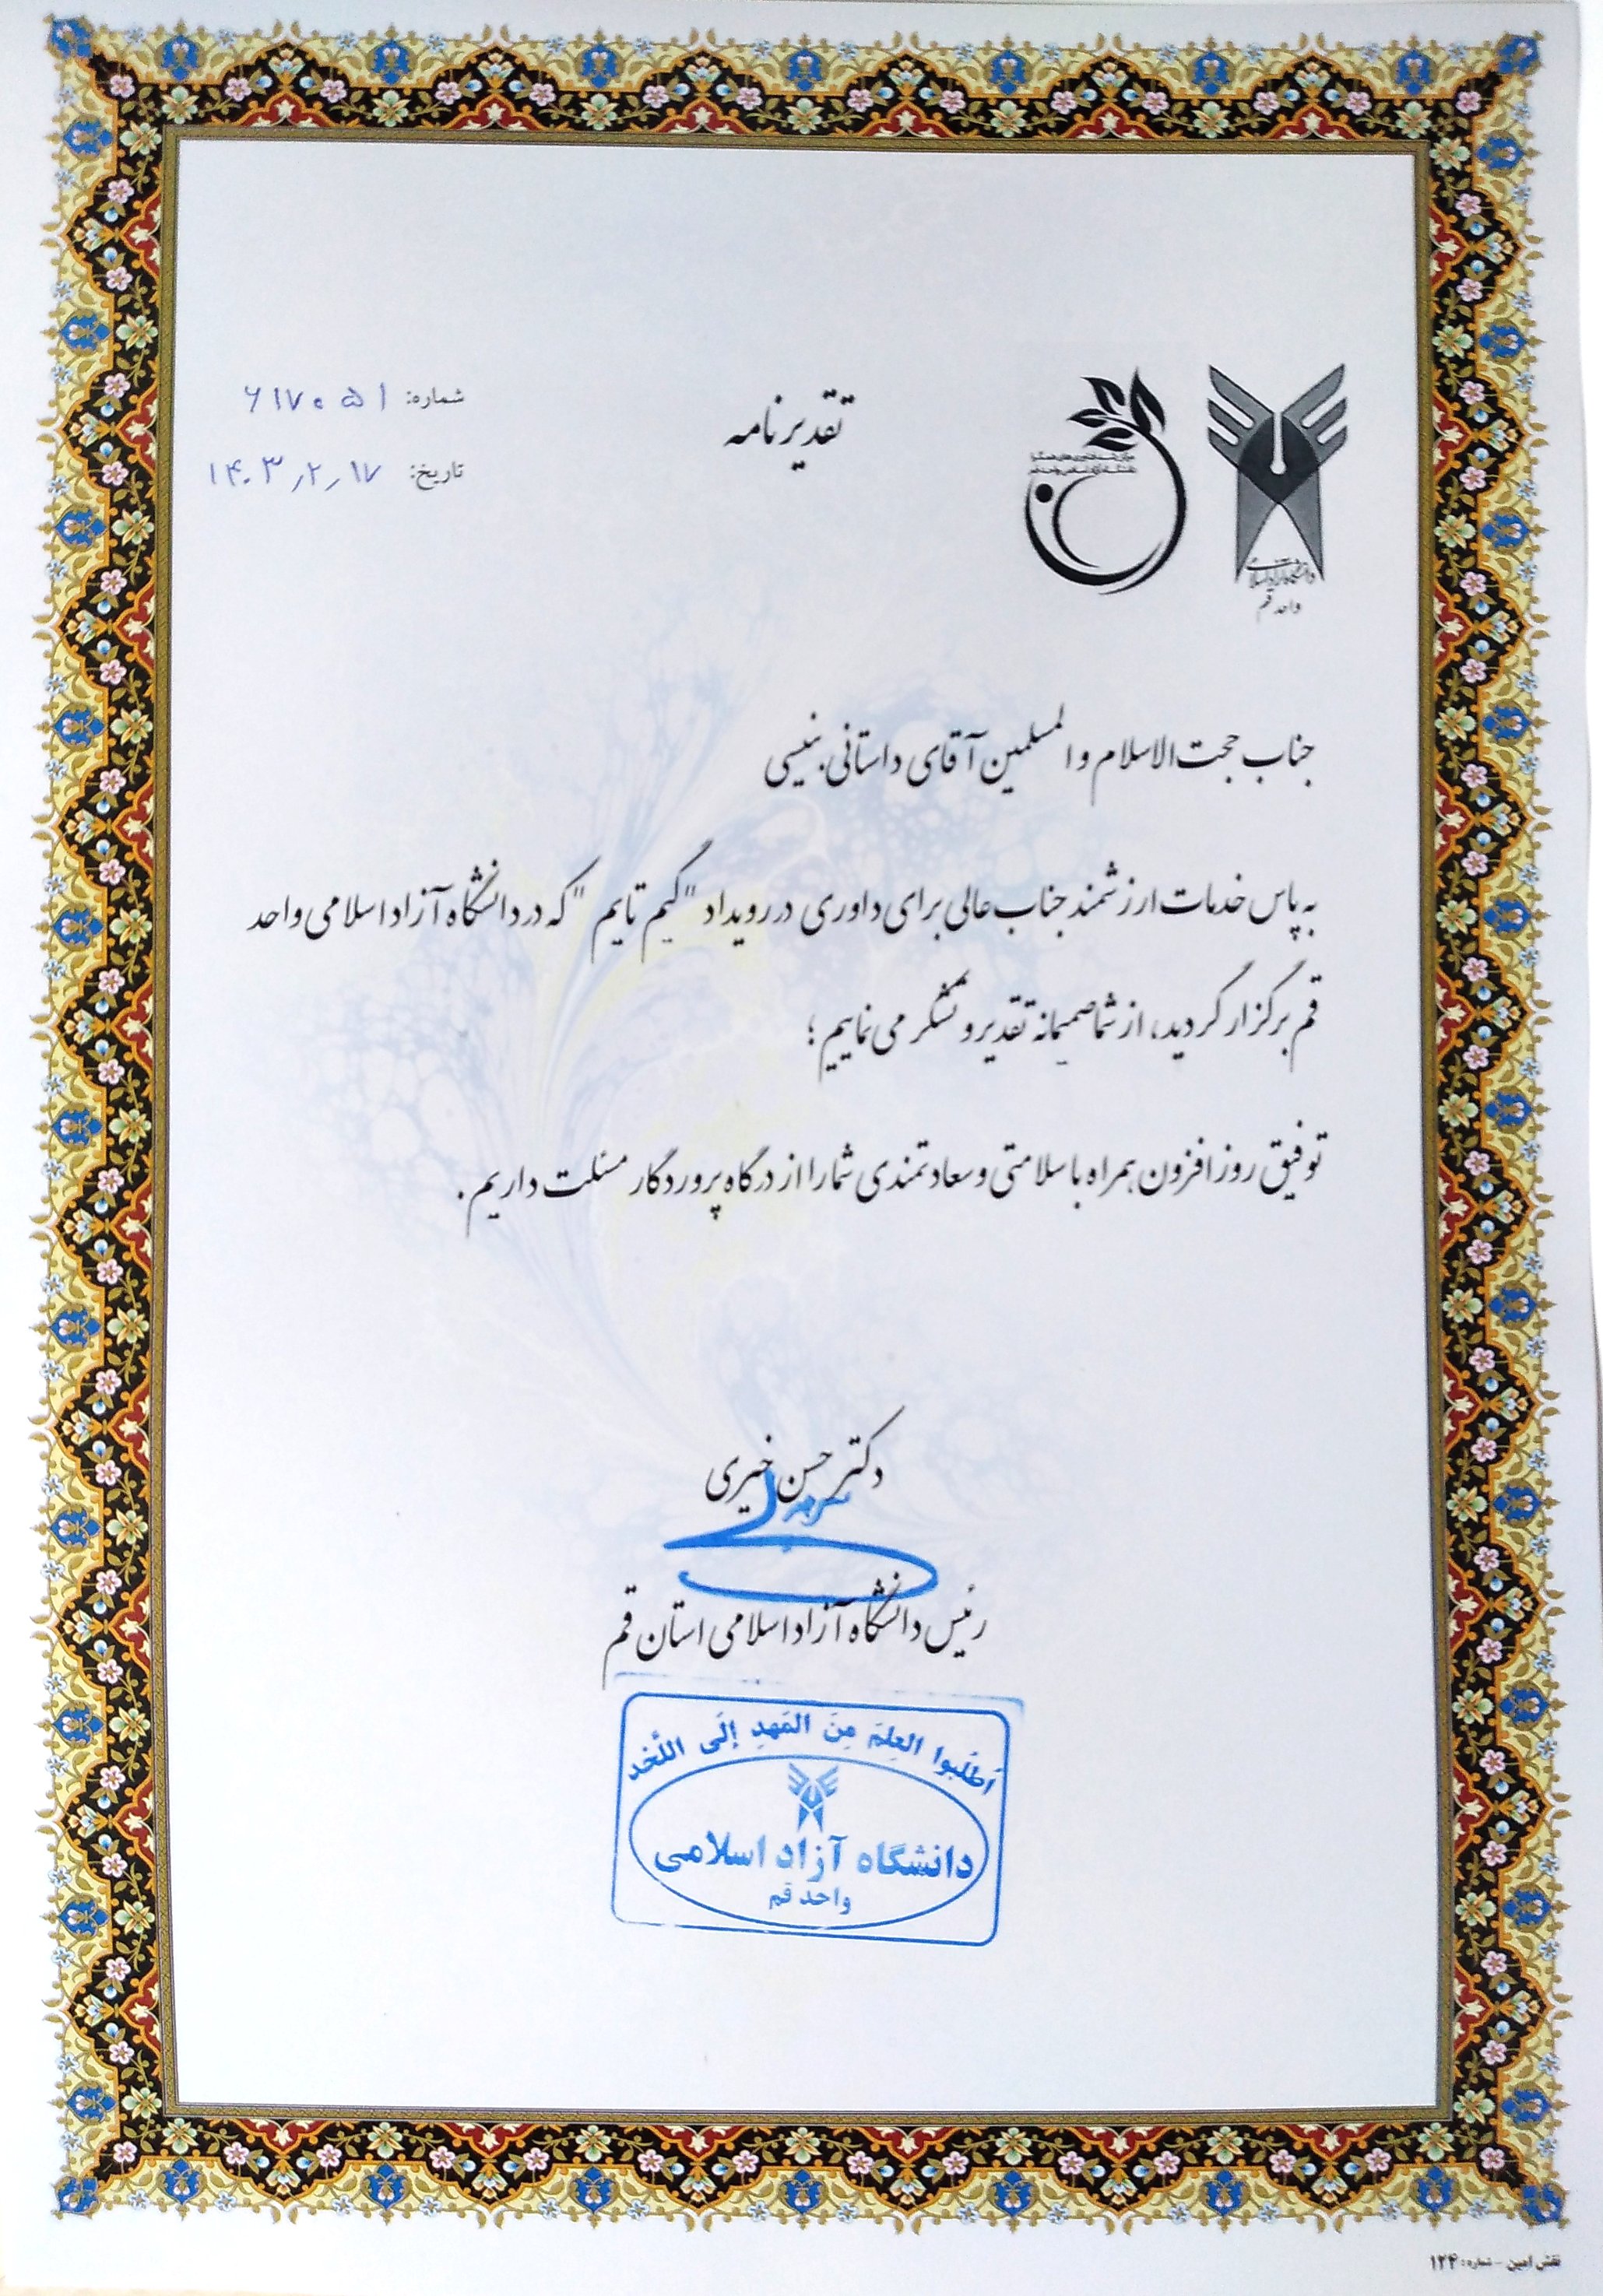 تقدیرنامه
شماره: ۶۱۷۰۵۱
تاریخ: ۱۴۰۳٫۲٫۱۷
دانشگاه آزاد اسلامی
واحد قم
جناب حجت الاسلام و المسلمین آقای داستانی بنیسی
به پاس خدمات ارزشمند جناب عالی برای داوری در رویداد "گیم تایم" که در دانشگاه آزاد اسلامی واحد
قم برگزار گردید، از شما صمیمانه تقدیر و تشکر می نماییم؛
توفیق روز افزون همراه با سلامتی و سعادتمندی شما را از درگاه پروردگار مسئلت داریم.
دکتر حسن خیری
رئیس دانشگاه آزاد اسلامی استان قم
اُطلُبوا العِلمَ مِنَ المَهدِ إلَی اللَّحَد
دانشگاه آزاد اسلامی
واحد قم
نقش امین - شماره: ۱۲۴